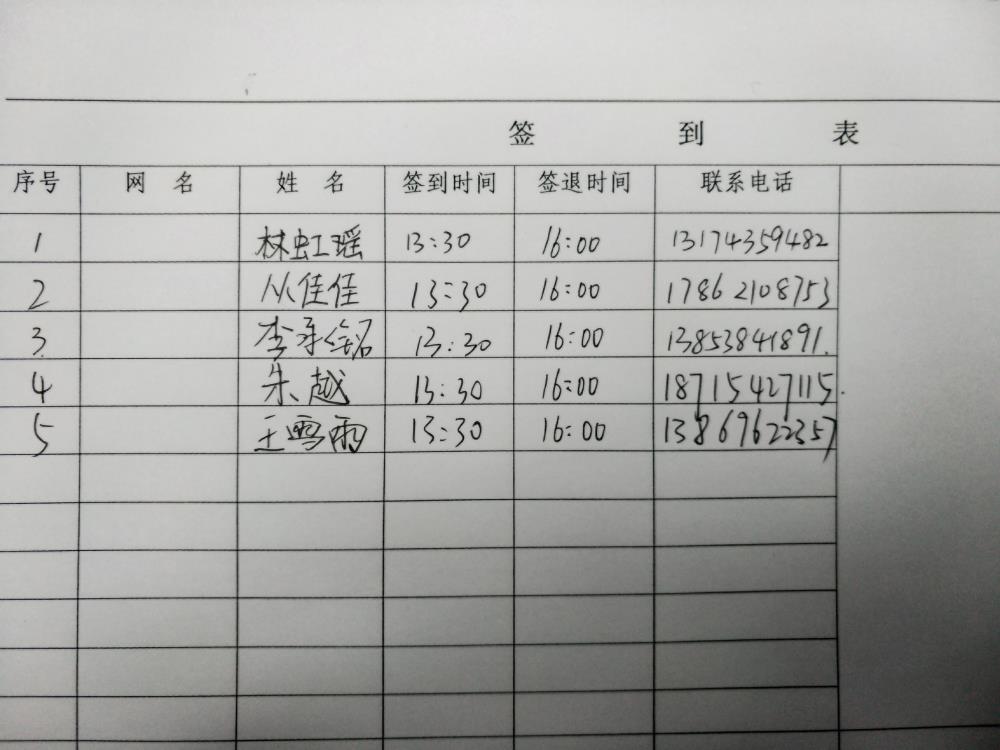 签 到 表
序号 网 名 姓 名 签到时间 签退时间 联系电话
1 林虹瑶 13:30 16:00 13174359482
2 从佳佳 13:30 16:00 17862108753
3. 李承铭 13:30 16:00 13853841891.
4 朱越 13:30 16:00 18715427115.
5 王雪雨 13:30 16:00 13869622357